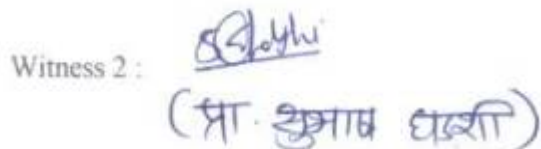 Witness 2 :
(प्रा. सुभाष घडशी)